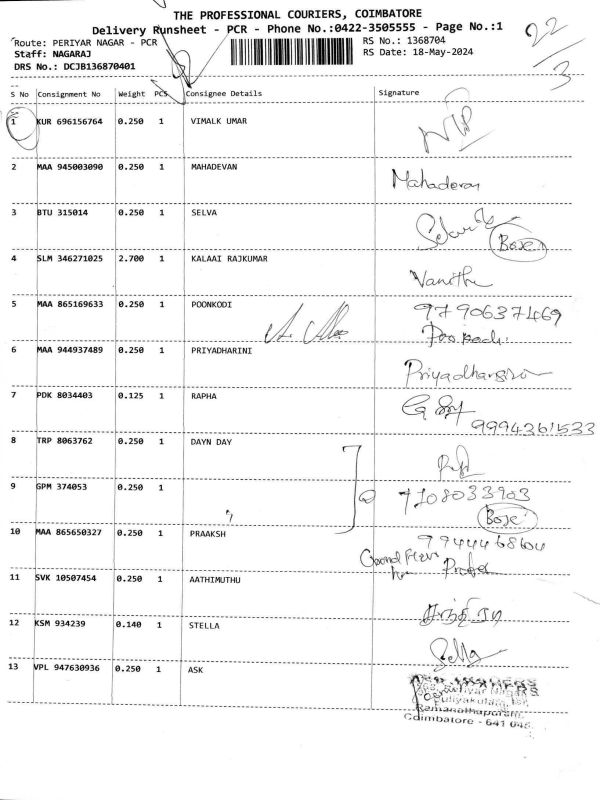 THE PROFESSIONAL COURIERS, COIMBATORE
Delivery Runsheet - PCR - Phone No.:0422-3505555 - Page No.:1
Route: PERIYAR NAGAR - PCR
Staff: NAGARAJ
DRS No.: DCJB136870401
RS No.: 1368704
RS Date: 18-May-2024
22/3
S No Consignment No Weight PCS Consignee Details Signature
1 KUR 696156764 0.250 1 VIMALK UMAR
2 MAA 945003090 0.250 1 MAHADEVAN Mahadevan
3 BTU 315014 0.250 1 SELVA
Box
4 SLM 346271025 2.700 1 KALAAI RAJKUMAR Vanitha
5 MAA 865169633 0.250 1 POONKODI 9790637469
6 MAA 944937489 0.250 1 PRIYADHARINI Priyadharsini
7 PDK 8034403 0.125 1 RAPHA
9994361533
8 TRP 8063762 0.250 1 DAYN DAY
9 GPM 374053 0.250 1 7108033903
Box
10 MAA 865650327 0.250 1 PRAAKSH 9944468604
11 SVK 10507454 0.250 1 AATHIMUTHU
12 KSM 934239 0.140 1 STELLA Stella
13 VPL 947630936 0.250 1 ASK
Periyar Nagar
Puliyakulam
Ramanathapuram,
Coimbatore - 641 045